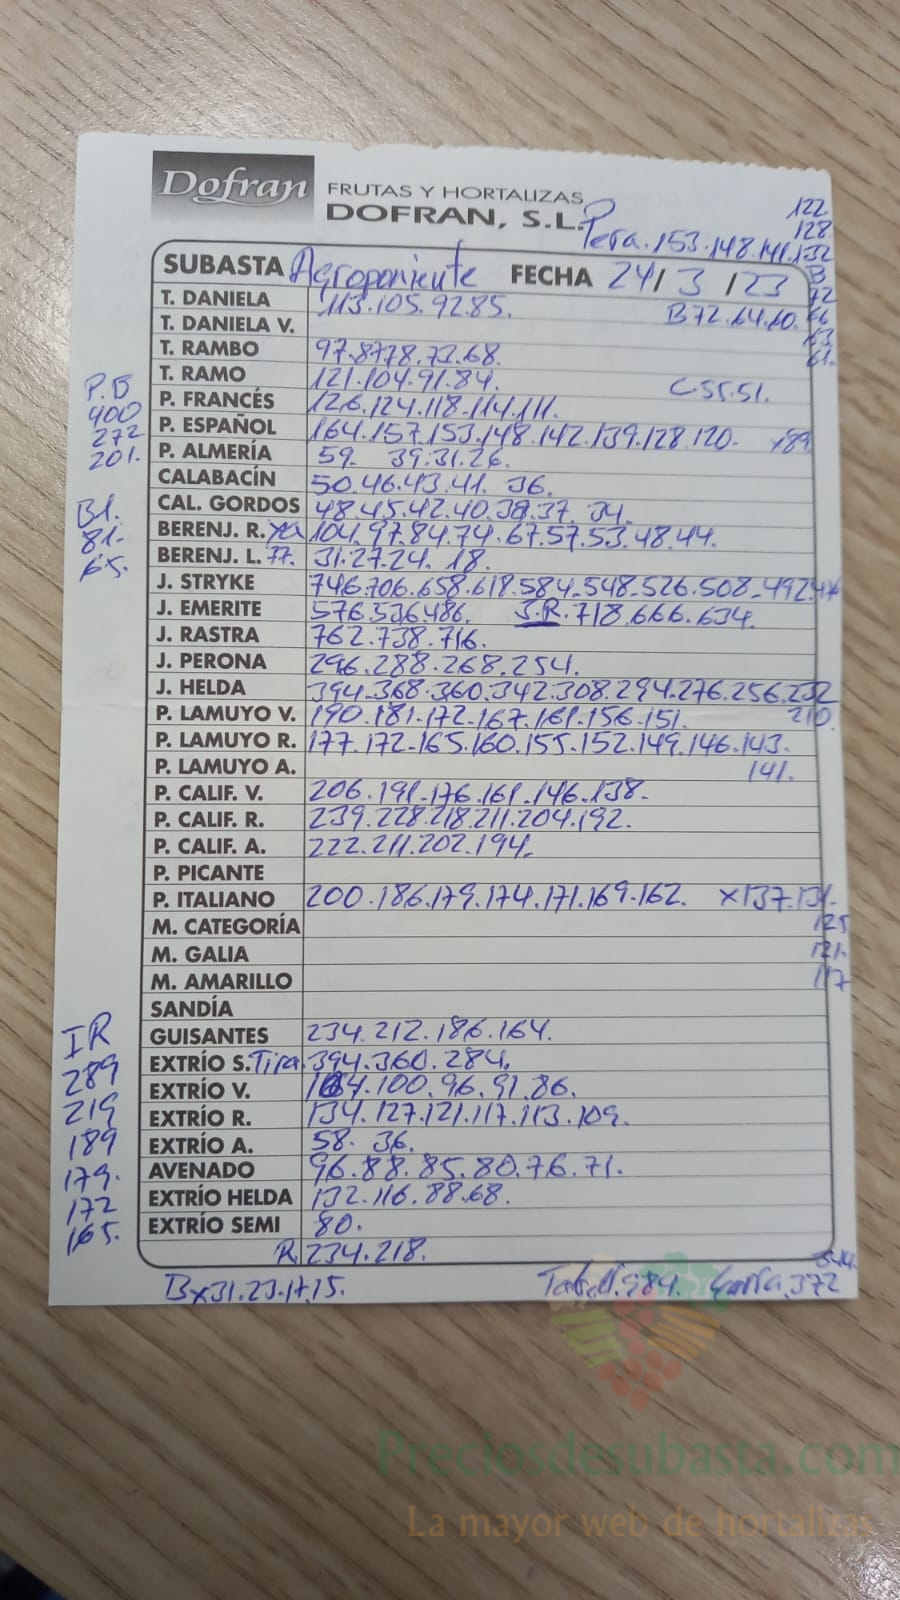 Dofran FRUTAS Y HORTALIZAS
DOFRAN, S.L.
122
128
Pera.153.148.141.132
SUBASTA Agroponiente FECHA 24/3/23 B
T. DANIELA 113.105.92.85. 72
T. DANIELA V. B72.64.60. 66
63
T. RAMBO 97.8778.73.68. 61.
T. RAMO 121.104.91.84. C-55.51.
P.B
400
272
201.
P. FRANCÉS 126.124.118.114.111.
P. ESPAÑOL 164.157.153.148.142.139.128.120. x89
P. ALMERÍA 59. 39.31.26.
CALABACÍN 50.46.43.41. 36.
B1.
81.
65.
CAL. GORDOS 48.45.42.40.39.37. 34.
BERENJ. R. 104.97.84.74.67.57.53.48.44.
BERENJ. L. 77. 31.27.24. 18.
J. STRYKE 746.706.658.618.584.548.526.508.492.
J. EMERITE 576.536.486. S.R.718.666.634.
J. RASTRA 762.738.716.
J. PERONA 296.288.268.254.
J. HELDA 394.368.360.342.308.294.276.256.232
210.
P. LAMUYO V. 190.181.172.167.161.156.151.
P. LAMUYO R. 177.172.165.160.155.152.149.146.143.
141.
P. LAMUYO A.
P. CALIF. V. 206.191.176.161.146.138.
P. CALIF. R. 239.228.218.211.204.192.
P. CALIF. A. 222.211.202.194.
P. PICANTE
P. ITALIANO 200.186.179.174.171.169.162. x137.131.
125
121.
117
M. CATEGORÍA
M. GALIA
M. AMARILLO
SANDÍA
IR
289
219
189
179.
172
165.
GUISANTES 234.212.186.164.
EXTRÍO S. Tira.394.360.284.
EXTRÍO V. 100.96.91.86.
EXTRÍO R. 134.127.121.117.113.109.
EXTRÍO A. 58. 36.
AVENADO 96.88.85.80.76.71.
EXTRÍO HELDA 132.116.88.68.
EXTRÍO SEMI 80.
R.234.218.
Bx31.23.17.15. 984. 372
Preciosdesubasta.com
La mayor web de hortalizas